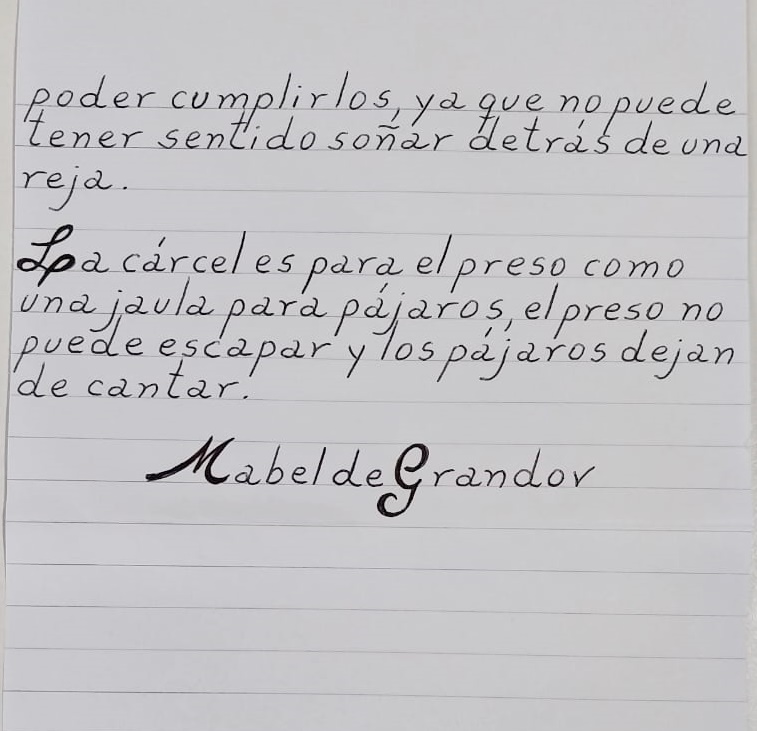 poder cumplirlos, ya que no puede
tener sentido soñar detrás de una
reja.
La cárcel es para el preso como
una jaula para pájaros, el preso no
puede escapar y los pájaros dejan
de cantar.
Mabel de Grandov